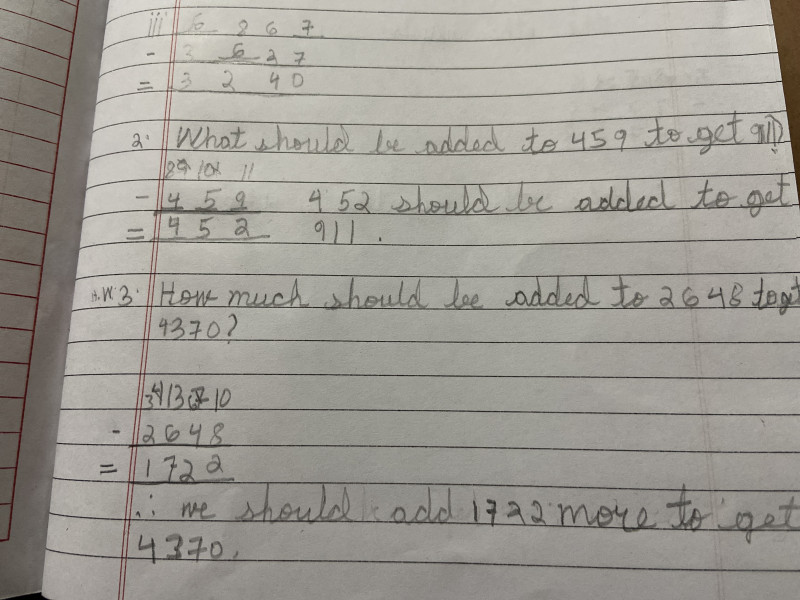 iii 6 8 6 7
- 3 6 2 7
= 3 2 40
2. What should be added to 459 to get 911?
- 4 5 9 452 should be added to get
= 4 5 2 911.
H.W. 3. How much should be added to 2648 to get
4370?
- 2648
= 1722
∴ we should add 1722 more to get
4370.